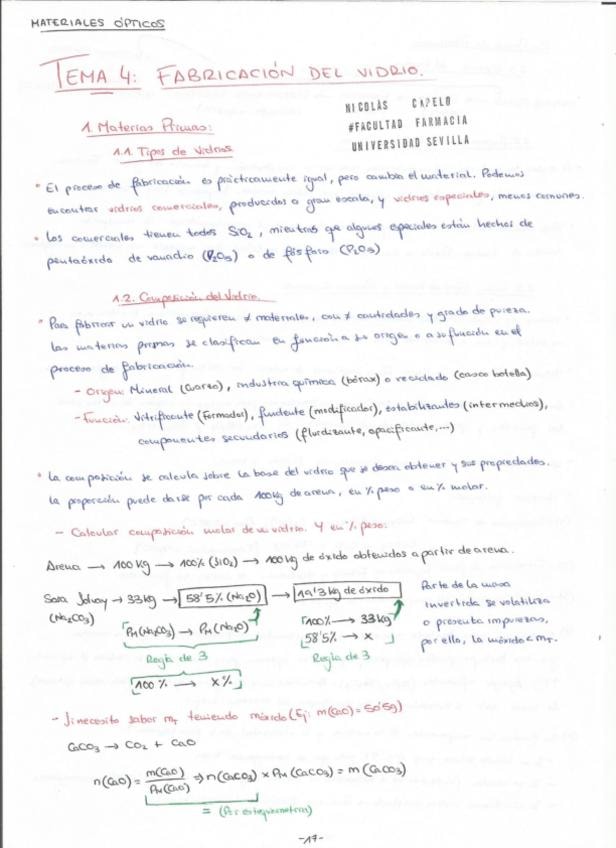 MATERIALES ÓPTICOS
TEMA 4: FABRICACIÓN DEL VIDRIO.
NICOLÁS CAPELO
#FACULTAD FARMACIA
UNIVERSIDAD SEVILLA
1. Materias Primas:
1.1. Tipos de Vidrios
• El proceso de fabricación es prácticamente igual, pero cambia el material. Podemos
encontrar vidrios comerciales, producidos a gran escala, y vidrios especiales, menos comunes.
• Los comerciales tienen todos SiO₂, mientras que algunos especiales están hechos de
pentaóxido de vanadio (P₂O₅) o de fósforo (P₂O₅)
1.2. Composición del Vidrio.
• Para fabricar un vidrio se requieren ≠ materiales, con ≠ cantidades y grado de pureza.
Las materias primas se clasifican en función a su origen o a su función en el
proceso de fabricación.
- Origen: Mineral (Cuarzo), industria química (bórax) o reciclado (casco botella)
- Función: Vitrificante (formador), fundente (modificador), estabilizantes (intermedios),
componentes secundarios (fluidizante, opacificante,...)
• La composición se calcula sobre la base del vidrio que se desea obtener y sus propiedades.
La proporción puede darse por cada 100Kg de arena, en % peso o en % molar.
- Calcular composición molar de un vidrio. Y en % peso:
Arena → 100 Kg → 100% (SiO₂) → 100 Kg de óxido obtenidos a partir de arena.
Sosa Solvay → 33 Kg → 58'5% (Na₂O) → 19'3 Kg de óxido
(Na₂CO₃)
Parte de la masa
invertida se volatiliza
o presenta impurezas,
por ello, la móxido < mT.
PM(Na₂CO₃) → PM(Na₂O)
100% → X%
Regla de 3
100% → 33 Kg
58'5% → x
Regla de 3
- Si necesito saber mT teniendo móxido (Ej: m(CaO) = 50'5g)
CaCO₃ → CO₂ + CaO
n(CaO) = m(CaO)/PM(CaO) ⇒ n(CaCO₃) × PM(CaCO₃) = m(CaCO₃)
= (Por estequiometría)
-17-